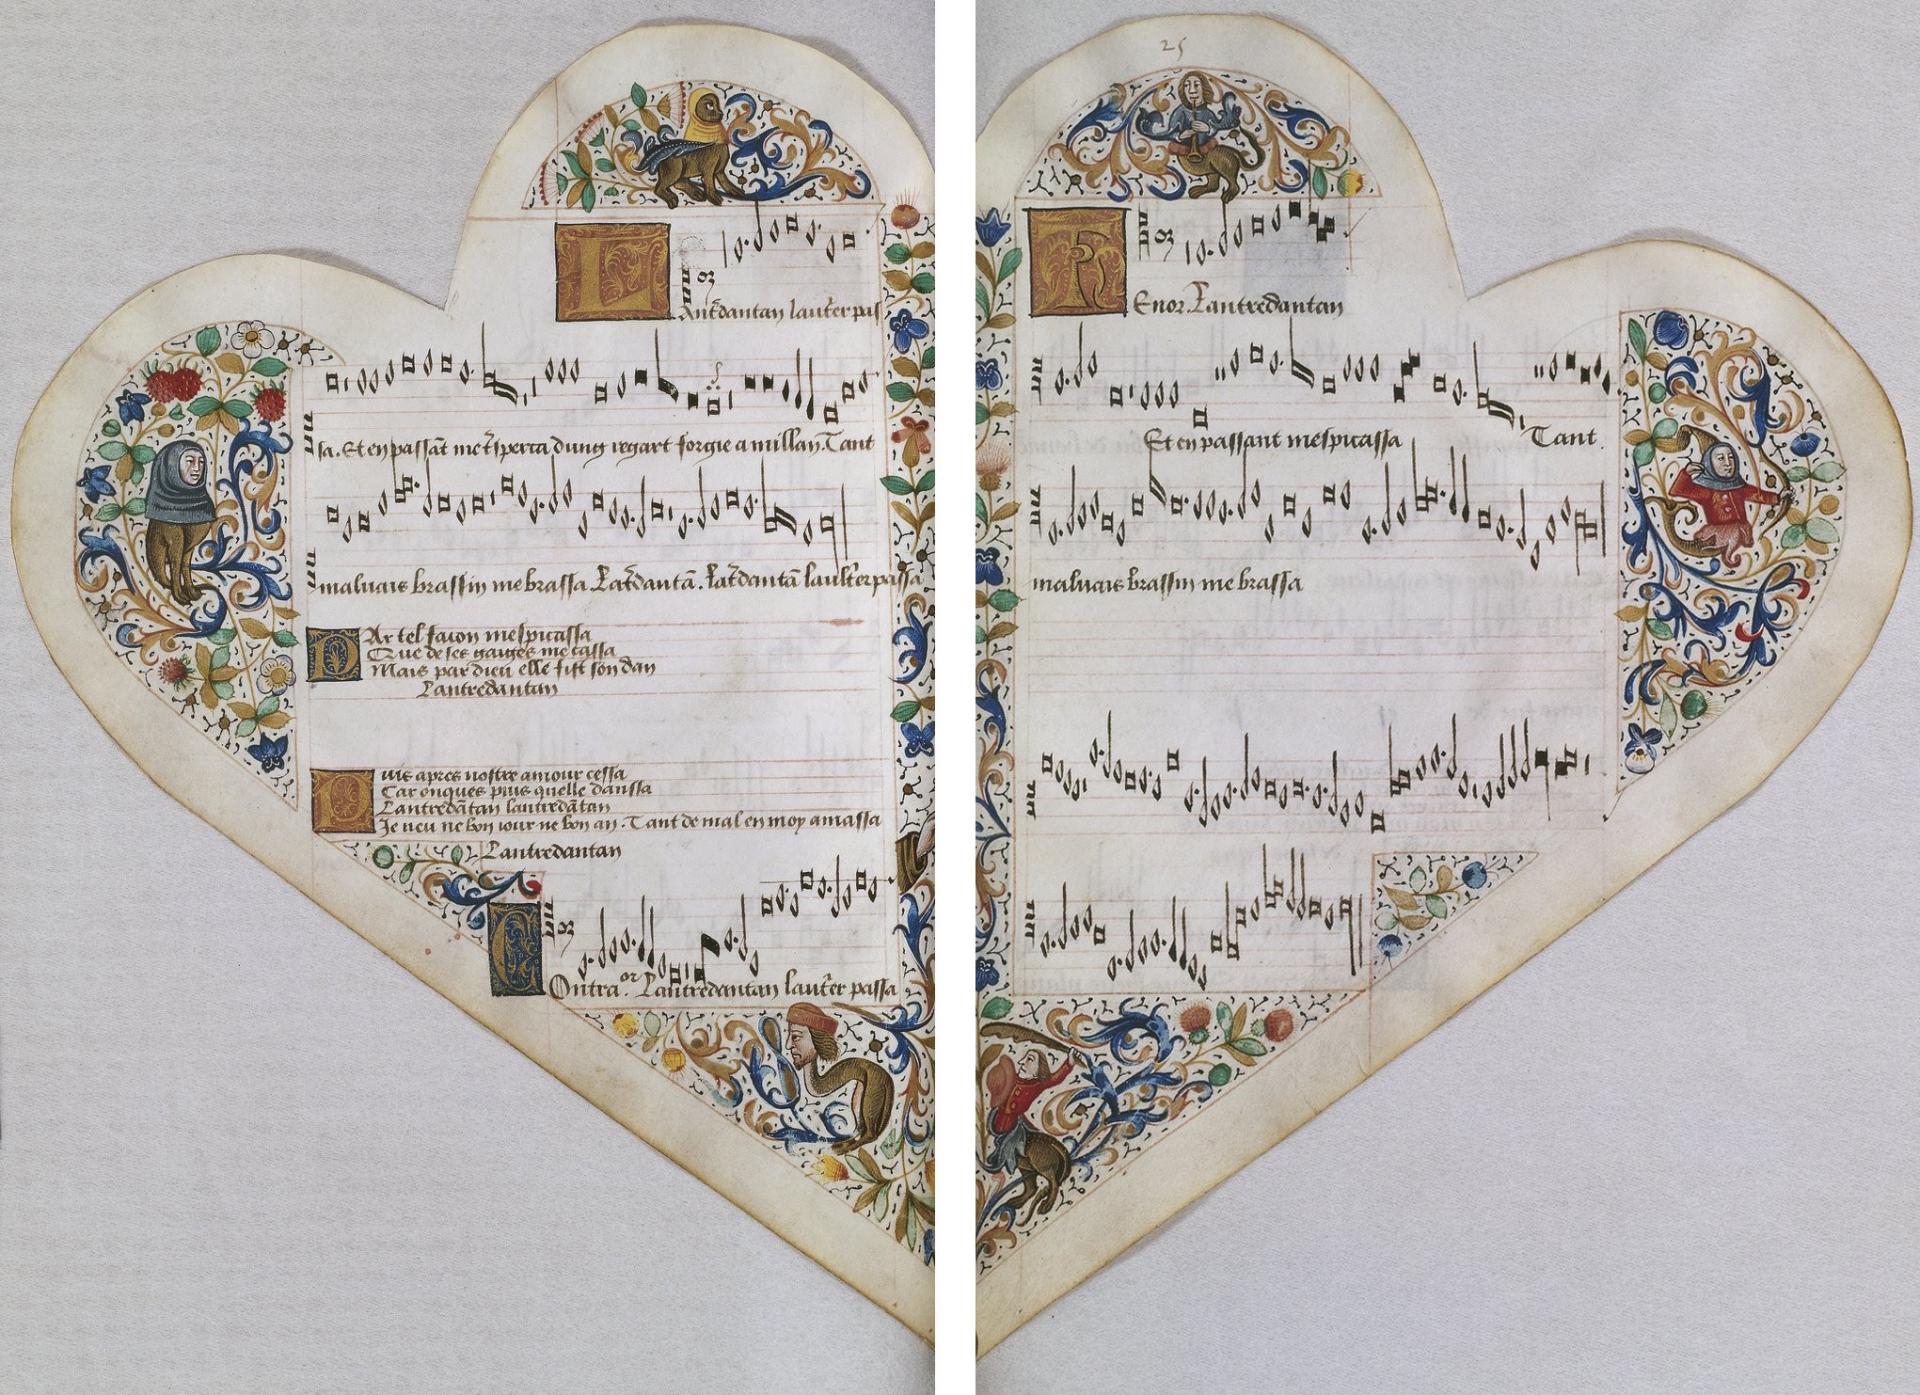 Lantredantan lautrier pas
sa. Et en passāt me tsperca dung regart forgie a millan. Tant
maluais brassin me brassa. Latrdantā. Latrdantā laultrer passa
Par tel facon mespicassa
Que de ses gaiges me cassa
Mais par dieu elle fist son dan
Lantredantan
Puis apres nostre amour cessa
Car onques puis quelle danssa
Lantredātan lantredātan
Je neu ne bon iour ne bon an. Tant de mal en moy amassa
Lantredantan
Contraor. Lantredantan lautrer passa
25
Tenor. Lantredantan
Et en passant mespicassa Tant
maluais brassin me brassa